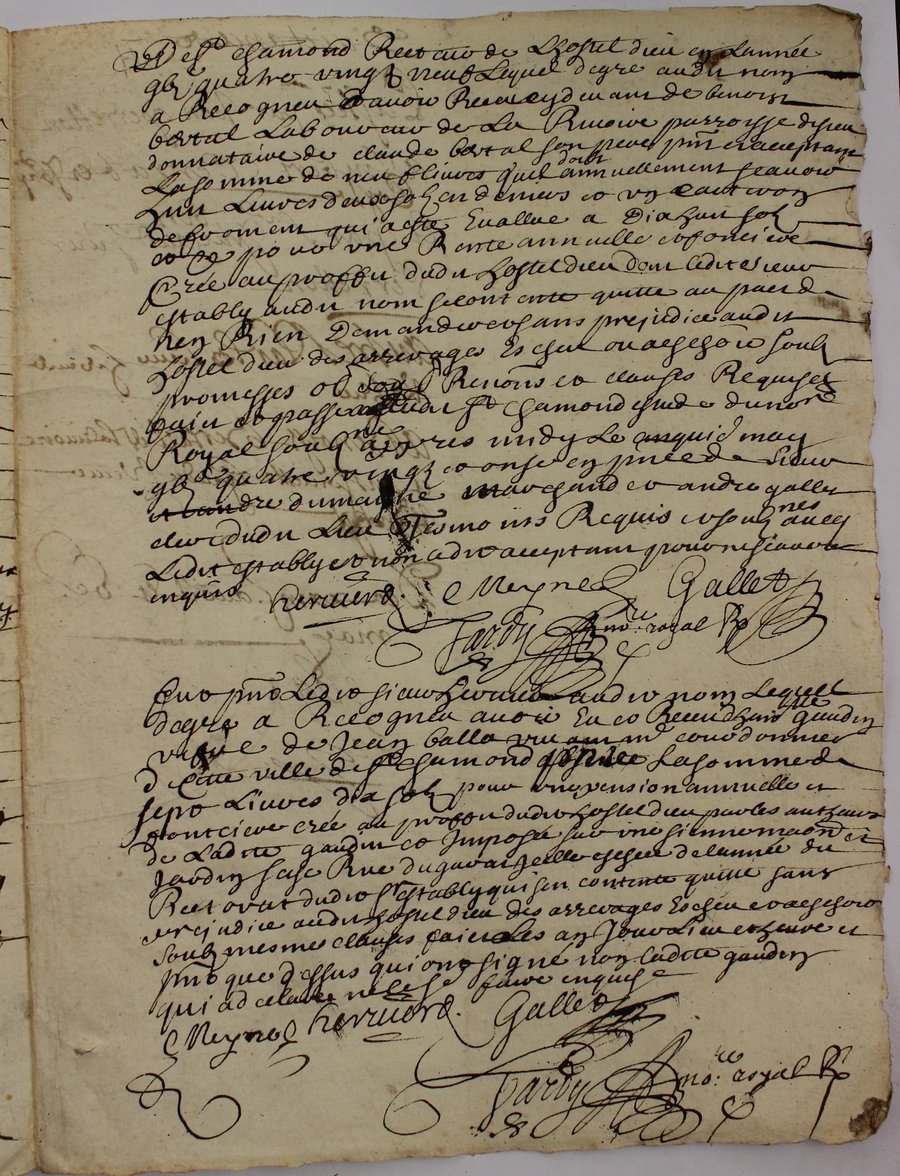 De St chamond Recteur de Lhostel dieu en Lannée
gbc quatre vingt neuf Lequel degre audit nom
a Recogneu avoir Receu cy devant de benoist
bertal Laboureur de La Rivoire parroisse
donnataire de claude bertal son pere pnt et acceptant
La somme de neuf livres quil doibt annuellement scavoir
huit Livres deux solz en deniers et un
de froment qui a este Evallue a Dixhuit solz
et ce pour une Rente annuelle et fonciere
Crée au proffit dudit hostel dieu dont ledit sieur
estably audit nom se contente quitte au pact de
nen Rien Demander et sans prejudice audit
hostel dieu des arrerages Escheu ou a eschoir soubz
promesses obligõns Renõns et clauses Requises
faict et passe audit St chamond estude du nore
Royal soubzne apres midy Le cinquie may
gbc quatre vingt et onze en pñce de sieur
dumaigne Marchand et andre gallet
clerc dudit Lieu Tesmoins Requis et soubznes avec
Ledit estably et non ledit acceptant pour ne scavoir
enquis hervierd. Meyne Gallet
Tardy nore royal R
Et pñt Ledit sieur hervierd audit nom Lequel
degre a Recogneu avoir Eu et Receu gaudin
vefve de Jean balla vivant me courdonnier
de cette ville de St chamond La somme de
sept Livres dix solz pour une pension annuelle et
fonciere crée au proffit dudit hostel dieu par les autheurs
de Ladite gaudin et Imposée sur une sienne maõn et
Jardin scise Rue du gavat Jcelle escheu de lannée du
Rectorat dudit sr estably qui sen contente quitte sans
prejudice audit hostel dieu des arrerages Escheu et a eschoir
soubz mesmes clauses faict Les an Jour Lieu et heure et
pñt que dessus qui ont signé non ladite gaudin
qui a declare ne le scavoir faire enquise
Meyne hervierd. Gallet
Tardy nore royal R